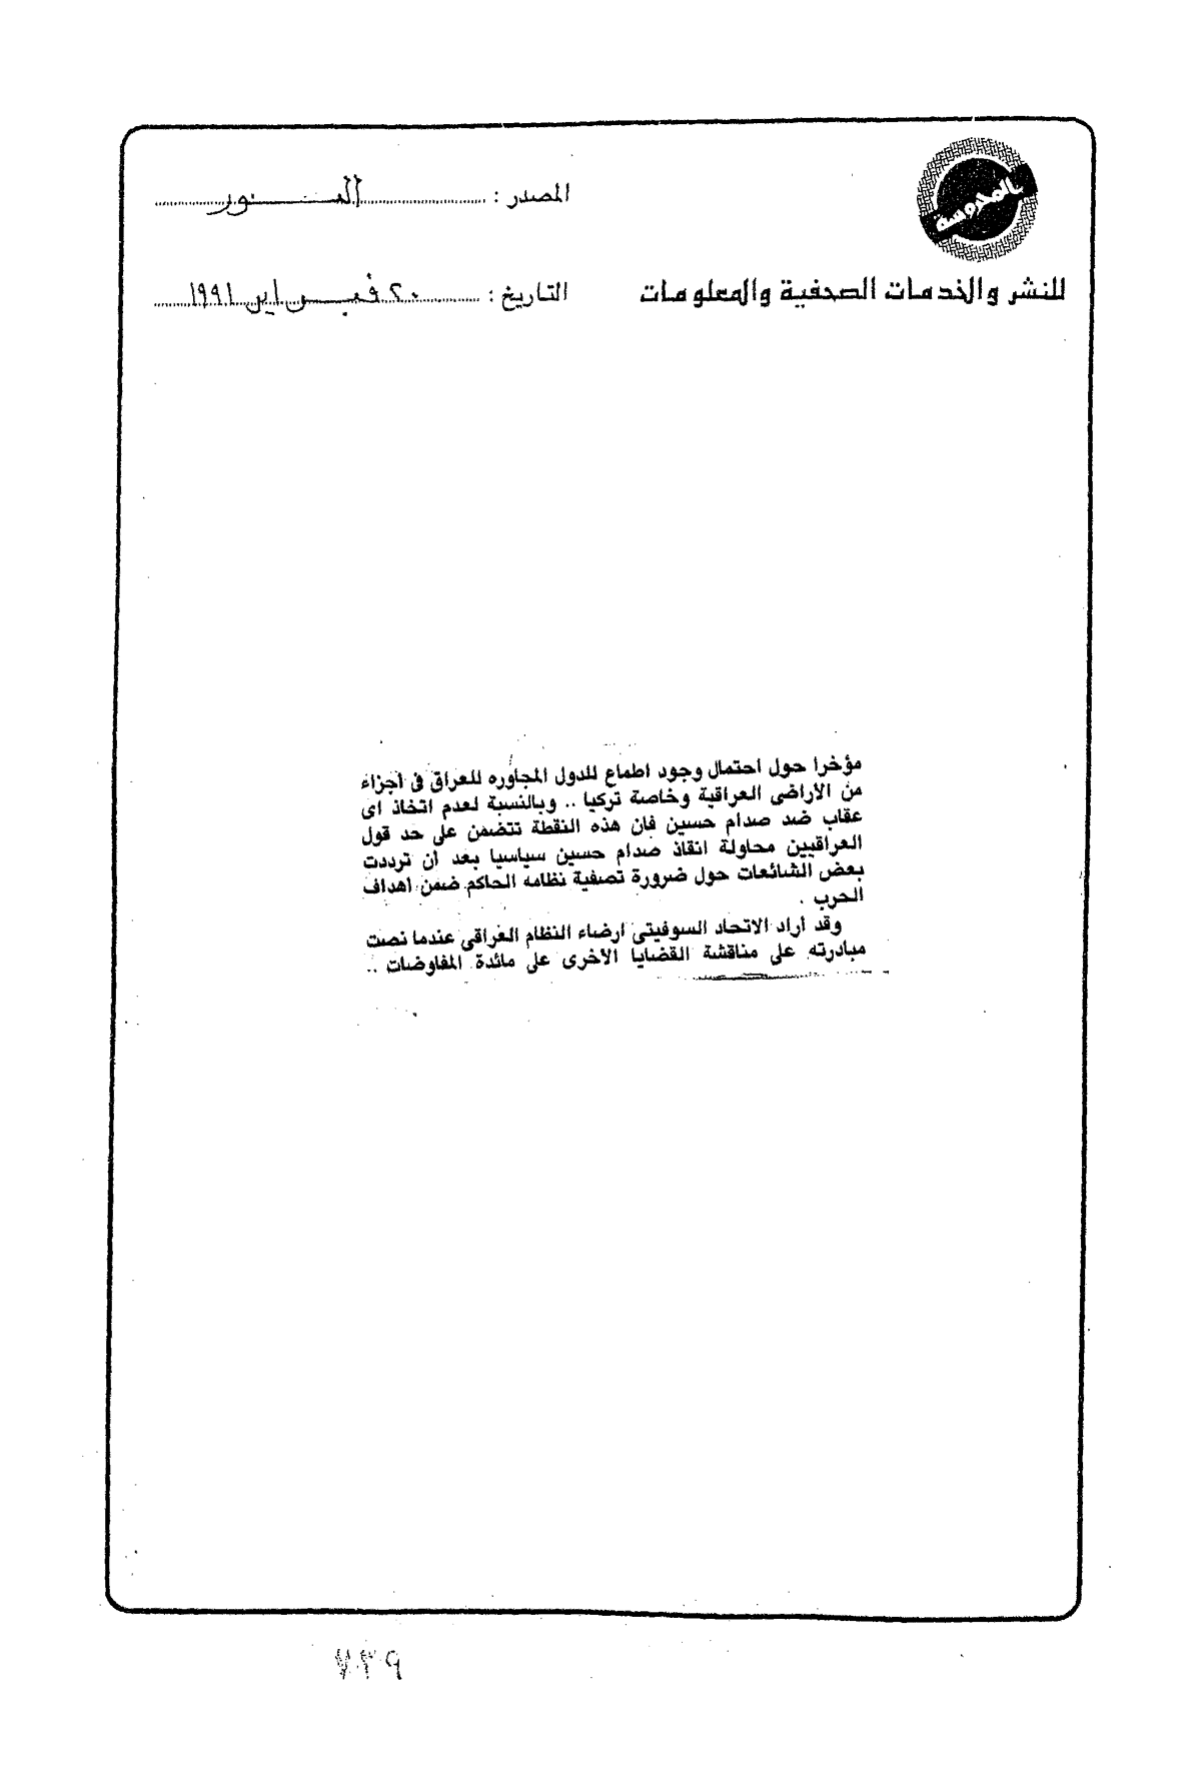 بالمحروسة
المصدر : النور
للنشر والخدمات الصحفية والمعلومات
التاريخ : ٢٠ فبراير ١٩٩١
مؤخرا حول احتمال وجود اطماع للدول المجاوره للعراق فى اجزاء
من الأراضى العراقية وخاصة تركيا .. وبالنسبة لعدم اتخاذ اى
عقاب ضد صدام حسين فان هذه النقطة تتضمن على حد قول
العراقيين محاولة انقاذ صدام حسين سياسيا بعد أن ترددت
بعض الشائعات حول ضرورة تصفية نظامه الحاكم ضمن أهداف
الحرب .
وقد أراد الاتحاد السوفيتى ارضاء النظام العراقى عندما نصت
مبادرته على مناقشة القضايا الأخرى على مائدة المفاوضات ..
٧٣٩